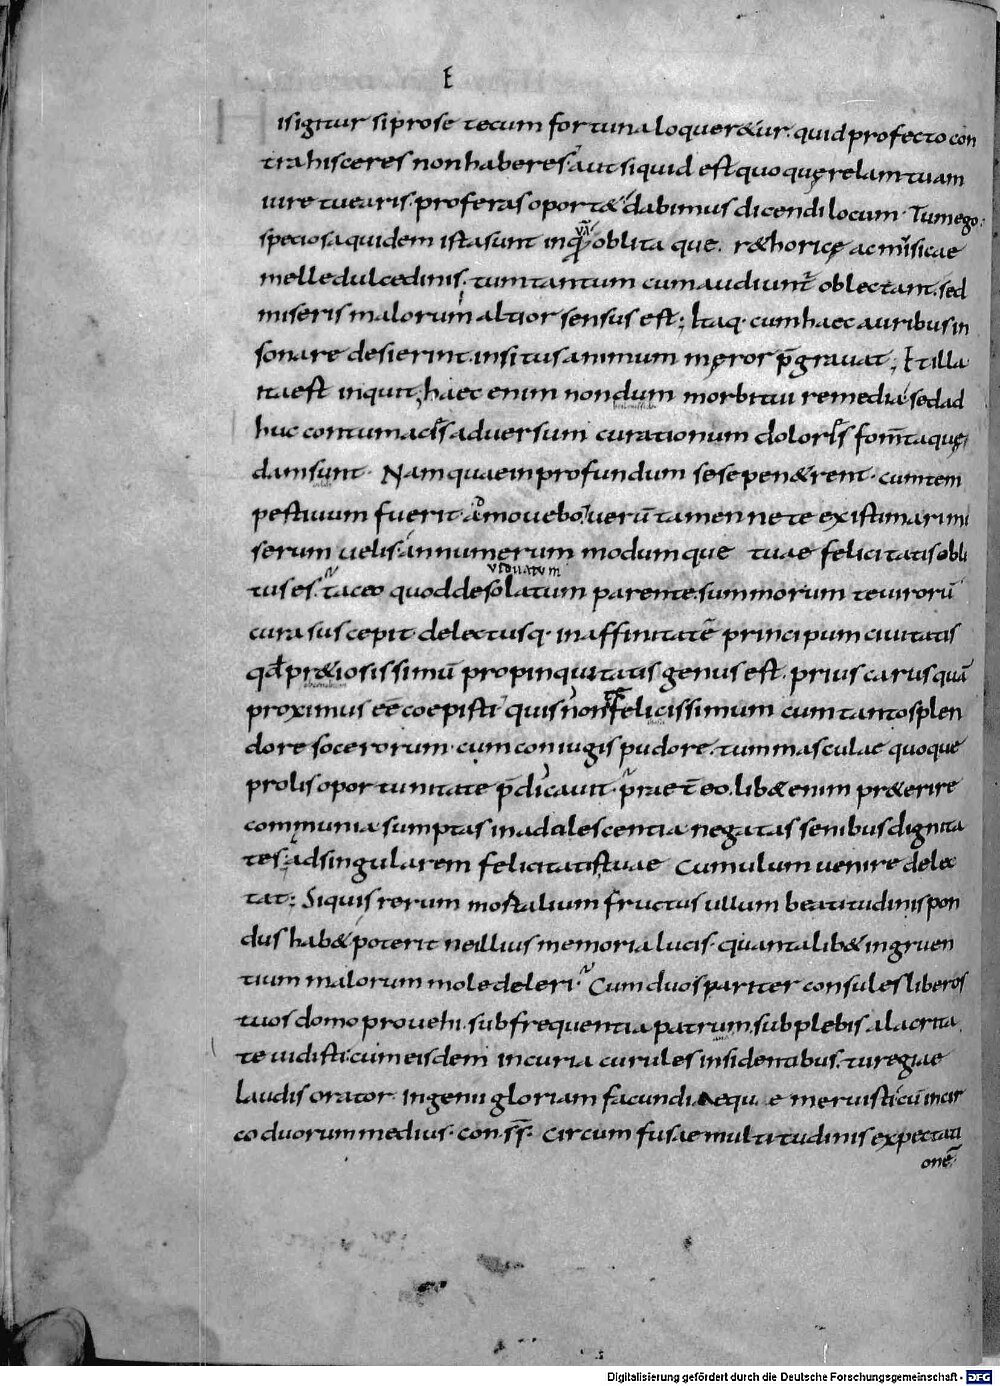 E
isigitur siprose tecum fortunaloquer&ur. quidprofecto con
trahisceres nonhaberes. autsiquid est quoquęrelamtuam
iure tuearis. proferasoport& dabimus dicendilocum. Tumego:
speciosaquidem istasunt inquā oblita que. r&horicę ac musicae
melledulcedinis. tumtantum cumaudiunt᷑ oblectant. sed
miseris malorum altior sensus est; Itaq· cumhaec auribusin
sonare desierint. insitusanimum męror p̄grauat; Et illa
itaest inquit, haec enim nondum morbitui remedia sedad
huc contumacis adversum curationum doloris fom̄taquę
damsunt. Nam quaeinprofundum sesepen&rent. cumtem
pestiuum fuerit ammouebo. verūtamen nete existimarimi
serum uelis. annumerum modumque tuae felicitatisobli
viduatum
tuses. taceo quoddesolatum parente. summorum teuirorū
curasuscepit. delectusq· inaffinitatē principumciuitatis
qđ pr&iosissimū propinquitatis genusest. prius carusquā
proximus eēcoepisti. quisnon felicissimum cumtantosplen
dore socerorum. cumconiugispudore. tummasculae quoque
prolisoportunitate p̄dicauit. prae t̄eo. lib&enim pr&erire
communia. sumptas inadulescentia negatas senibusdignita
tes. adsingularem felicitatistuae Cumulum uenire delec
tat; Siquisrerum mortalium fructus ullum beatitudinispon
dus hab&. poterit neillius memoria lucis. quantalib&ingruen
tium malorum moledeleri. Cumduospariter consules liberos
tuosdomoprouehi. subfrequentia patrum. subplebisalacrita
te uidisti. cumeisdem incuria curules insidentibus. turegiae
Laudis orator ingenii gloriam facundiaequ e meruisti. cū incir
co duorummedius. con.ss. circumfusae multitudinis expectati
onē
Digitalisierung gefördert durch die Deutsche Forschungsgemeinschaft - DFG